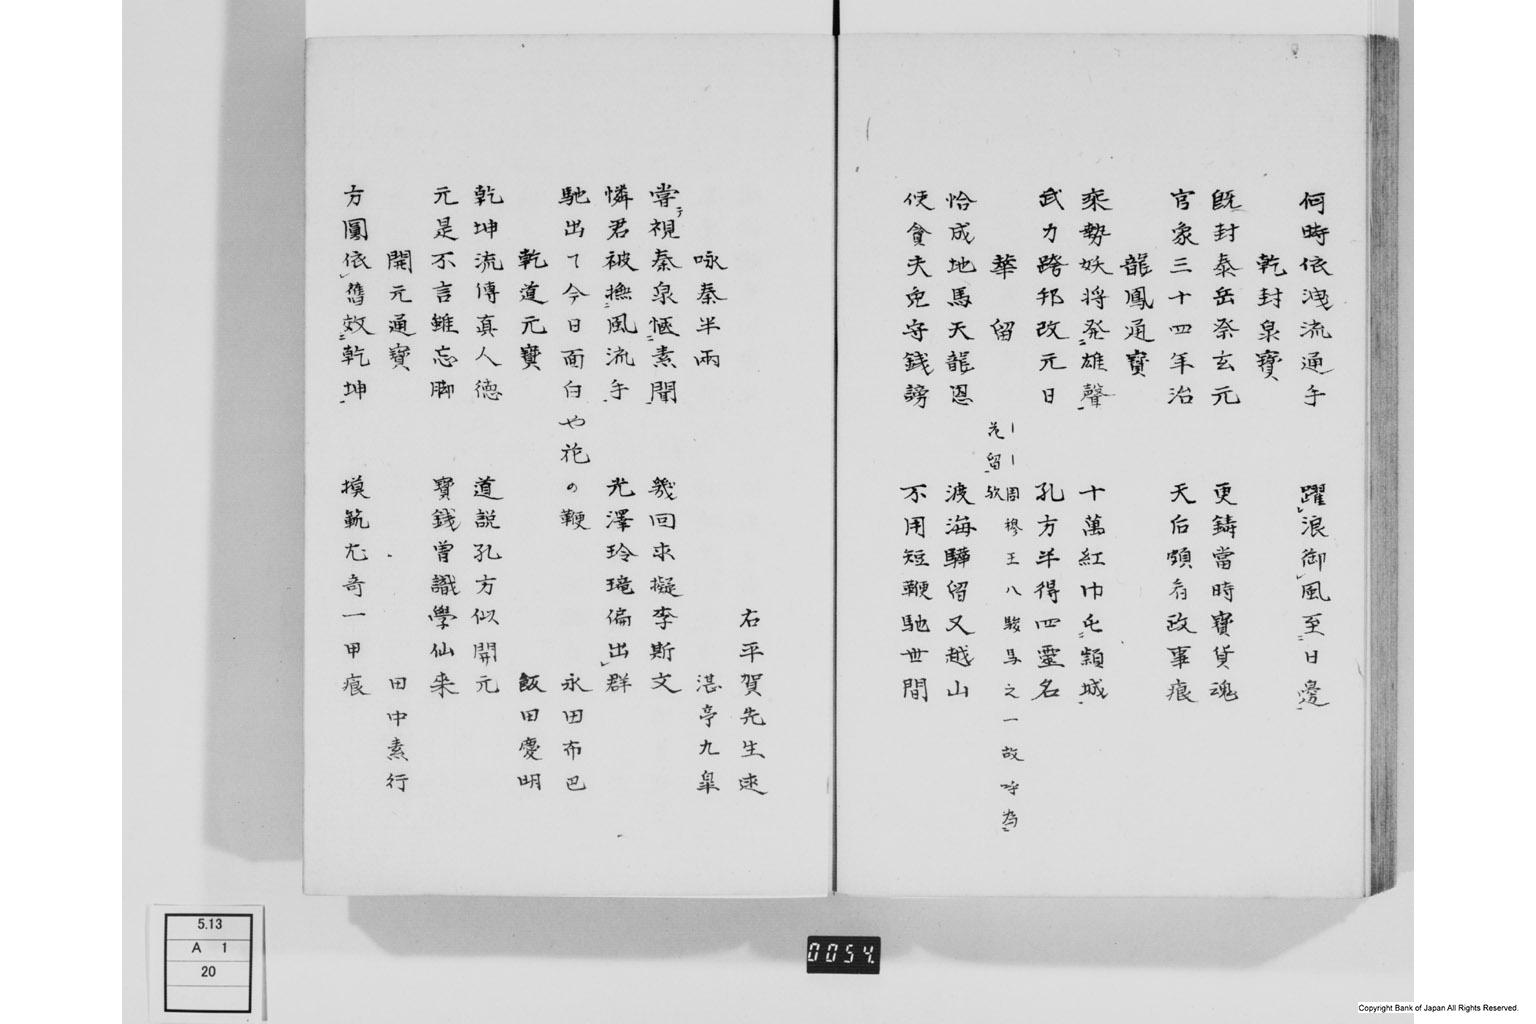 何時依洩流通手　躍浪御風至日邊
乾封泉寶
既封泰岳祭玄元　更鋳當時寶貨魂
官象三十四年治　天后頗有政事痕
龍鳳通寶
乘勢妖将発雄聲　十萬紅巾屯潁城
武力跨邦改元日　孔方半得四靈名
華留
｜｜周穆王八駿馬之一故呼為
花留欤
恰成地馬天龍恩　渡海驊留又越山
使貪夫免守錢謗　不用短鞭馳世間
右平賀先生述
咏秦半兩　湛亭九皐
嘗テ視秦泉愜素聞　幾回求擬李斯文
憐君被撫風流手　光澤玲瓏偏出群
永田布巴
馳出て今日面白や花の鞭
乾道元寶　飯田慶明
乾坤流傳真人徳　道説孔方似開元
元是不言雖忘脚　寶錢曽識學仙来
開元通寶　田中素行
方圓依舊效乾坤　摸範尤奇一甲痕
5.13
A 1
20
0054
Copyright Bank of Japan All Rights Reserved.